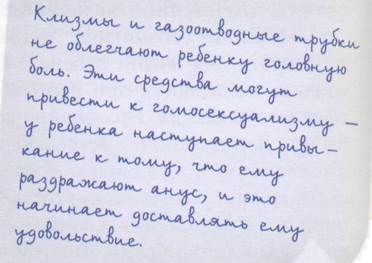 Клизмы и газоотводные трубки
не облегчают ребенку головную
боль. Эти средства могут
привести к гомосексуализму –
у ребенка наступает привы-
кание к тому, что ему
раздражают анус, и это
начинает доставлять ему
удовольствие.